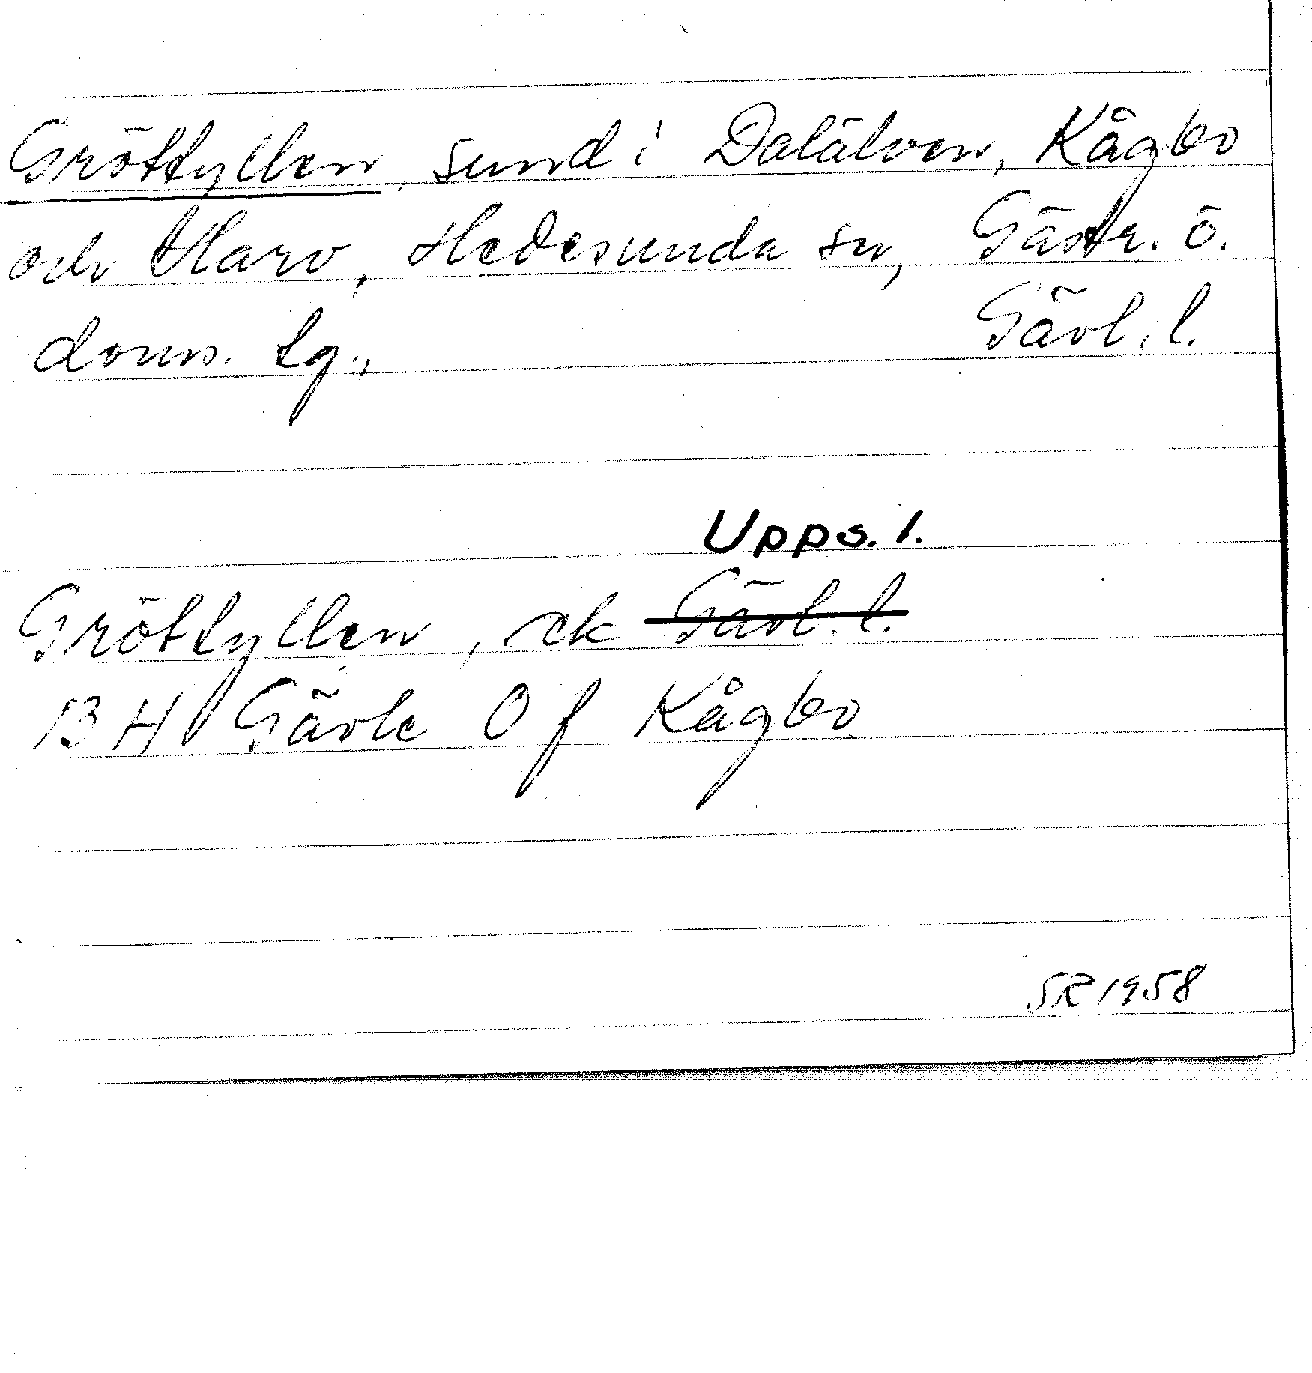 Gröttyllen, sund i Dalälven, Kågbo
och Harv, Hedesunda sn, Gästr. ö.
doms. tg., Gävl. l.
Upps. l.
Gröttyllen, ek Gävl. l.
13 H Gävle 0 f Kågbo
SR 1958